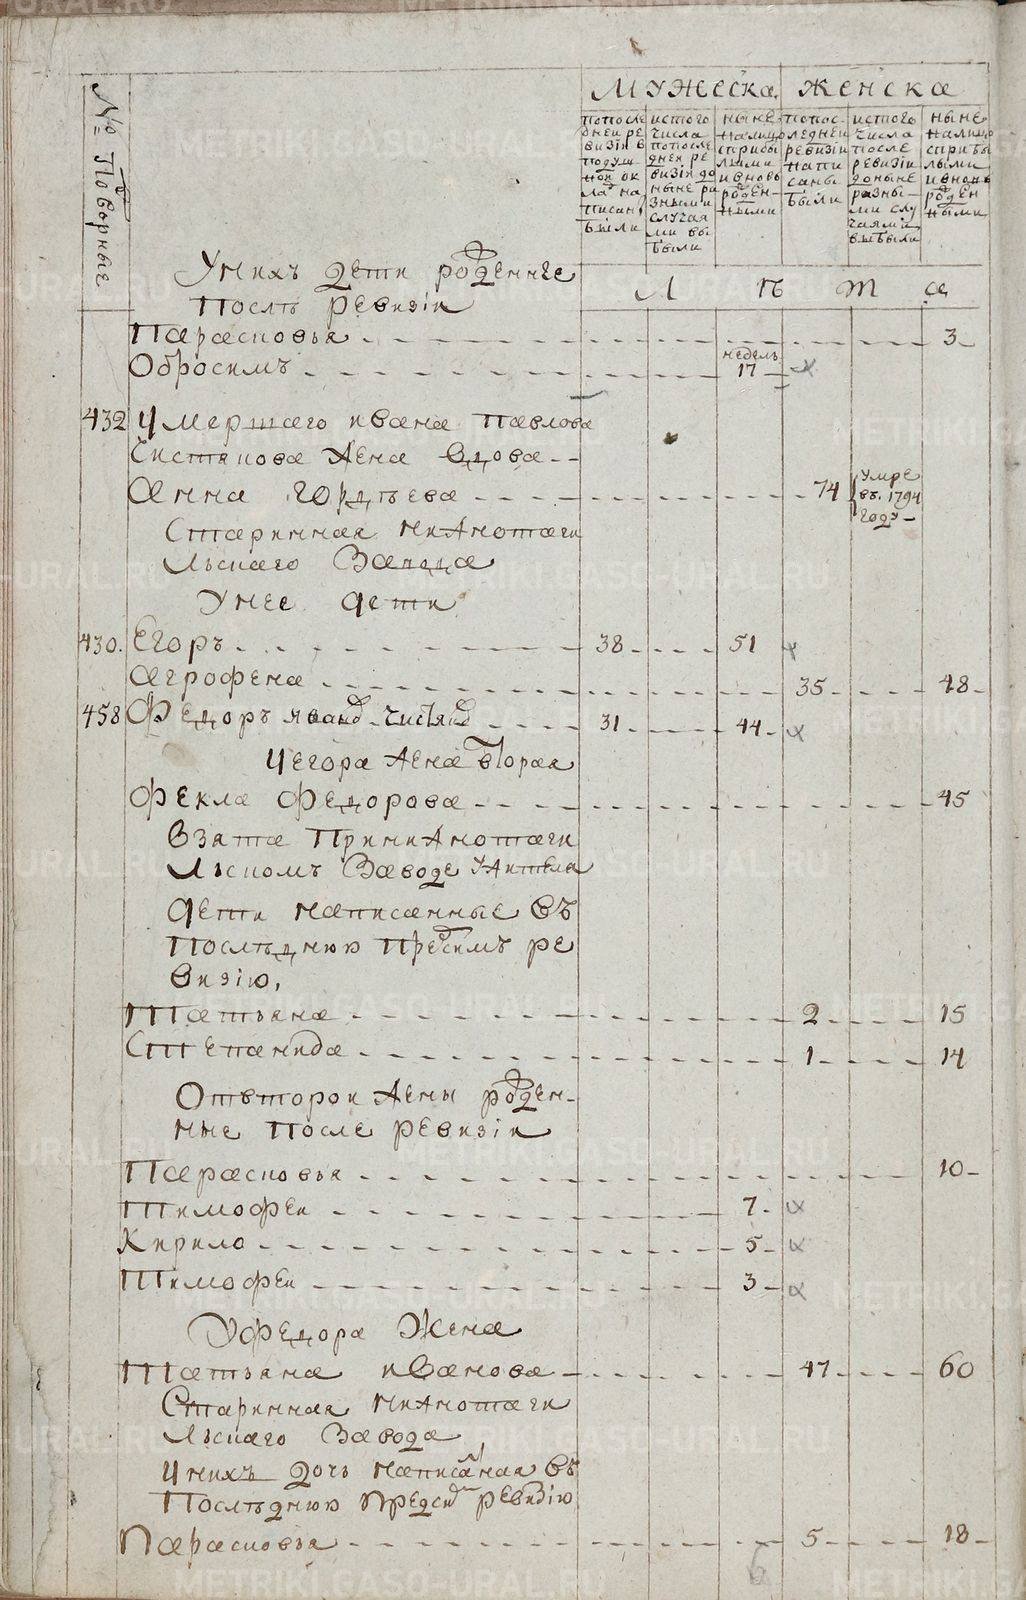 № Подворные
мужеска. женска
попосле дней ре визіи в подуш ной ок лад на писан были
истого числа попосле дней ре визіи до ныне ра зными случая ми вы были
ныне налицо сприбы лыми ивновь рожден ными
попос ледней ревизіи напи саны были
истого числа после ревизіи доныне разны ми слу чаями выбыли
ныне налицо сприбы лыми ивновь рожден ными
Унихъ дети рожденнее
послѣ ревизіи
Л ѣ т а
Парасковья 3
недель
Обросимъ 17
432 Умершаго ивана павлова
Чистякова жена вдова
анна гордѣева 74 умре въ 1794 году
Старинная нижнотаги
льскаго Завода
Унее дети
430. Егоръ 38 51
агрофена 35 48
458 Федоръ иванов чистяков 31 44
Уегора жена вторая
Фекла Федорова 45
Взята принижнотаги
льскомъ Заводе ужителя
дети написанные въ
Послѣднюю пресимъ ре
визію,
Татьяна 2 15
Степанида 1 14
Отвторои жены рожден-
ные после ревизіи
Парасковья 10
Тимофеи 7
Кирило 5
Тимофеи 3
Уфедора Жена
Татьяна иванова 47 60
Старинная нижнотаги
льскаго Завода
Унихъ дочь написанная въ
Послѣднюю предсим ревизію
Парасковья 5 18
METRIKI.GASO-URAL.RU